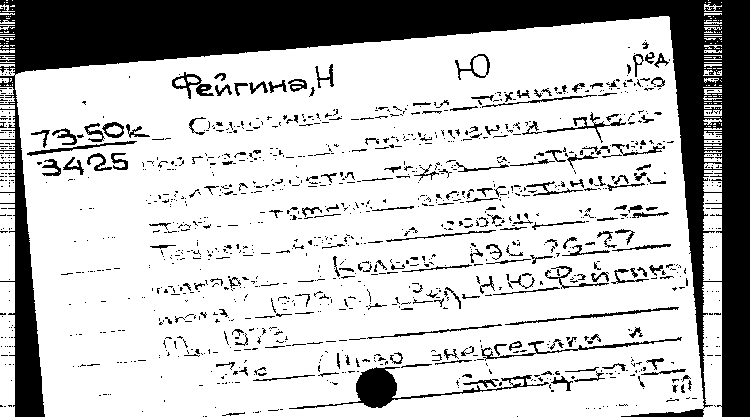 Фейгина, Н Ю , ред.
73-50к Основные пути технического
3425 прогресса и повышения произ-
водительности труда в строитель-
стве тепловых электростанций.
Тезисы докл. и сообщ. к се-
минару (Кольск АЭС, 26-27
июля 1973 г.). Ред. Н.Ю. Фейгина
М., 1973
74с (М-во энергетики и
электриф.